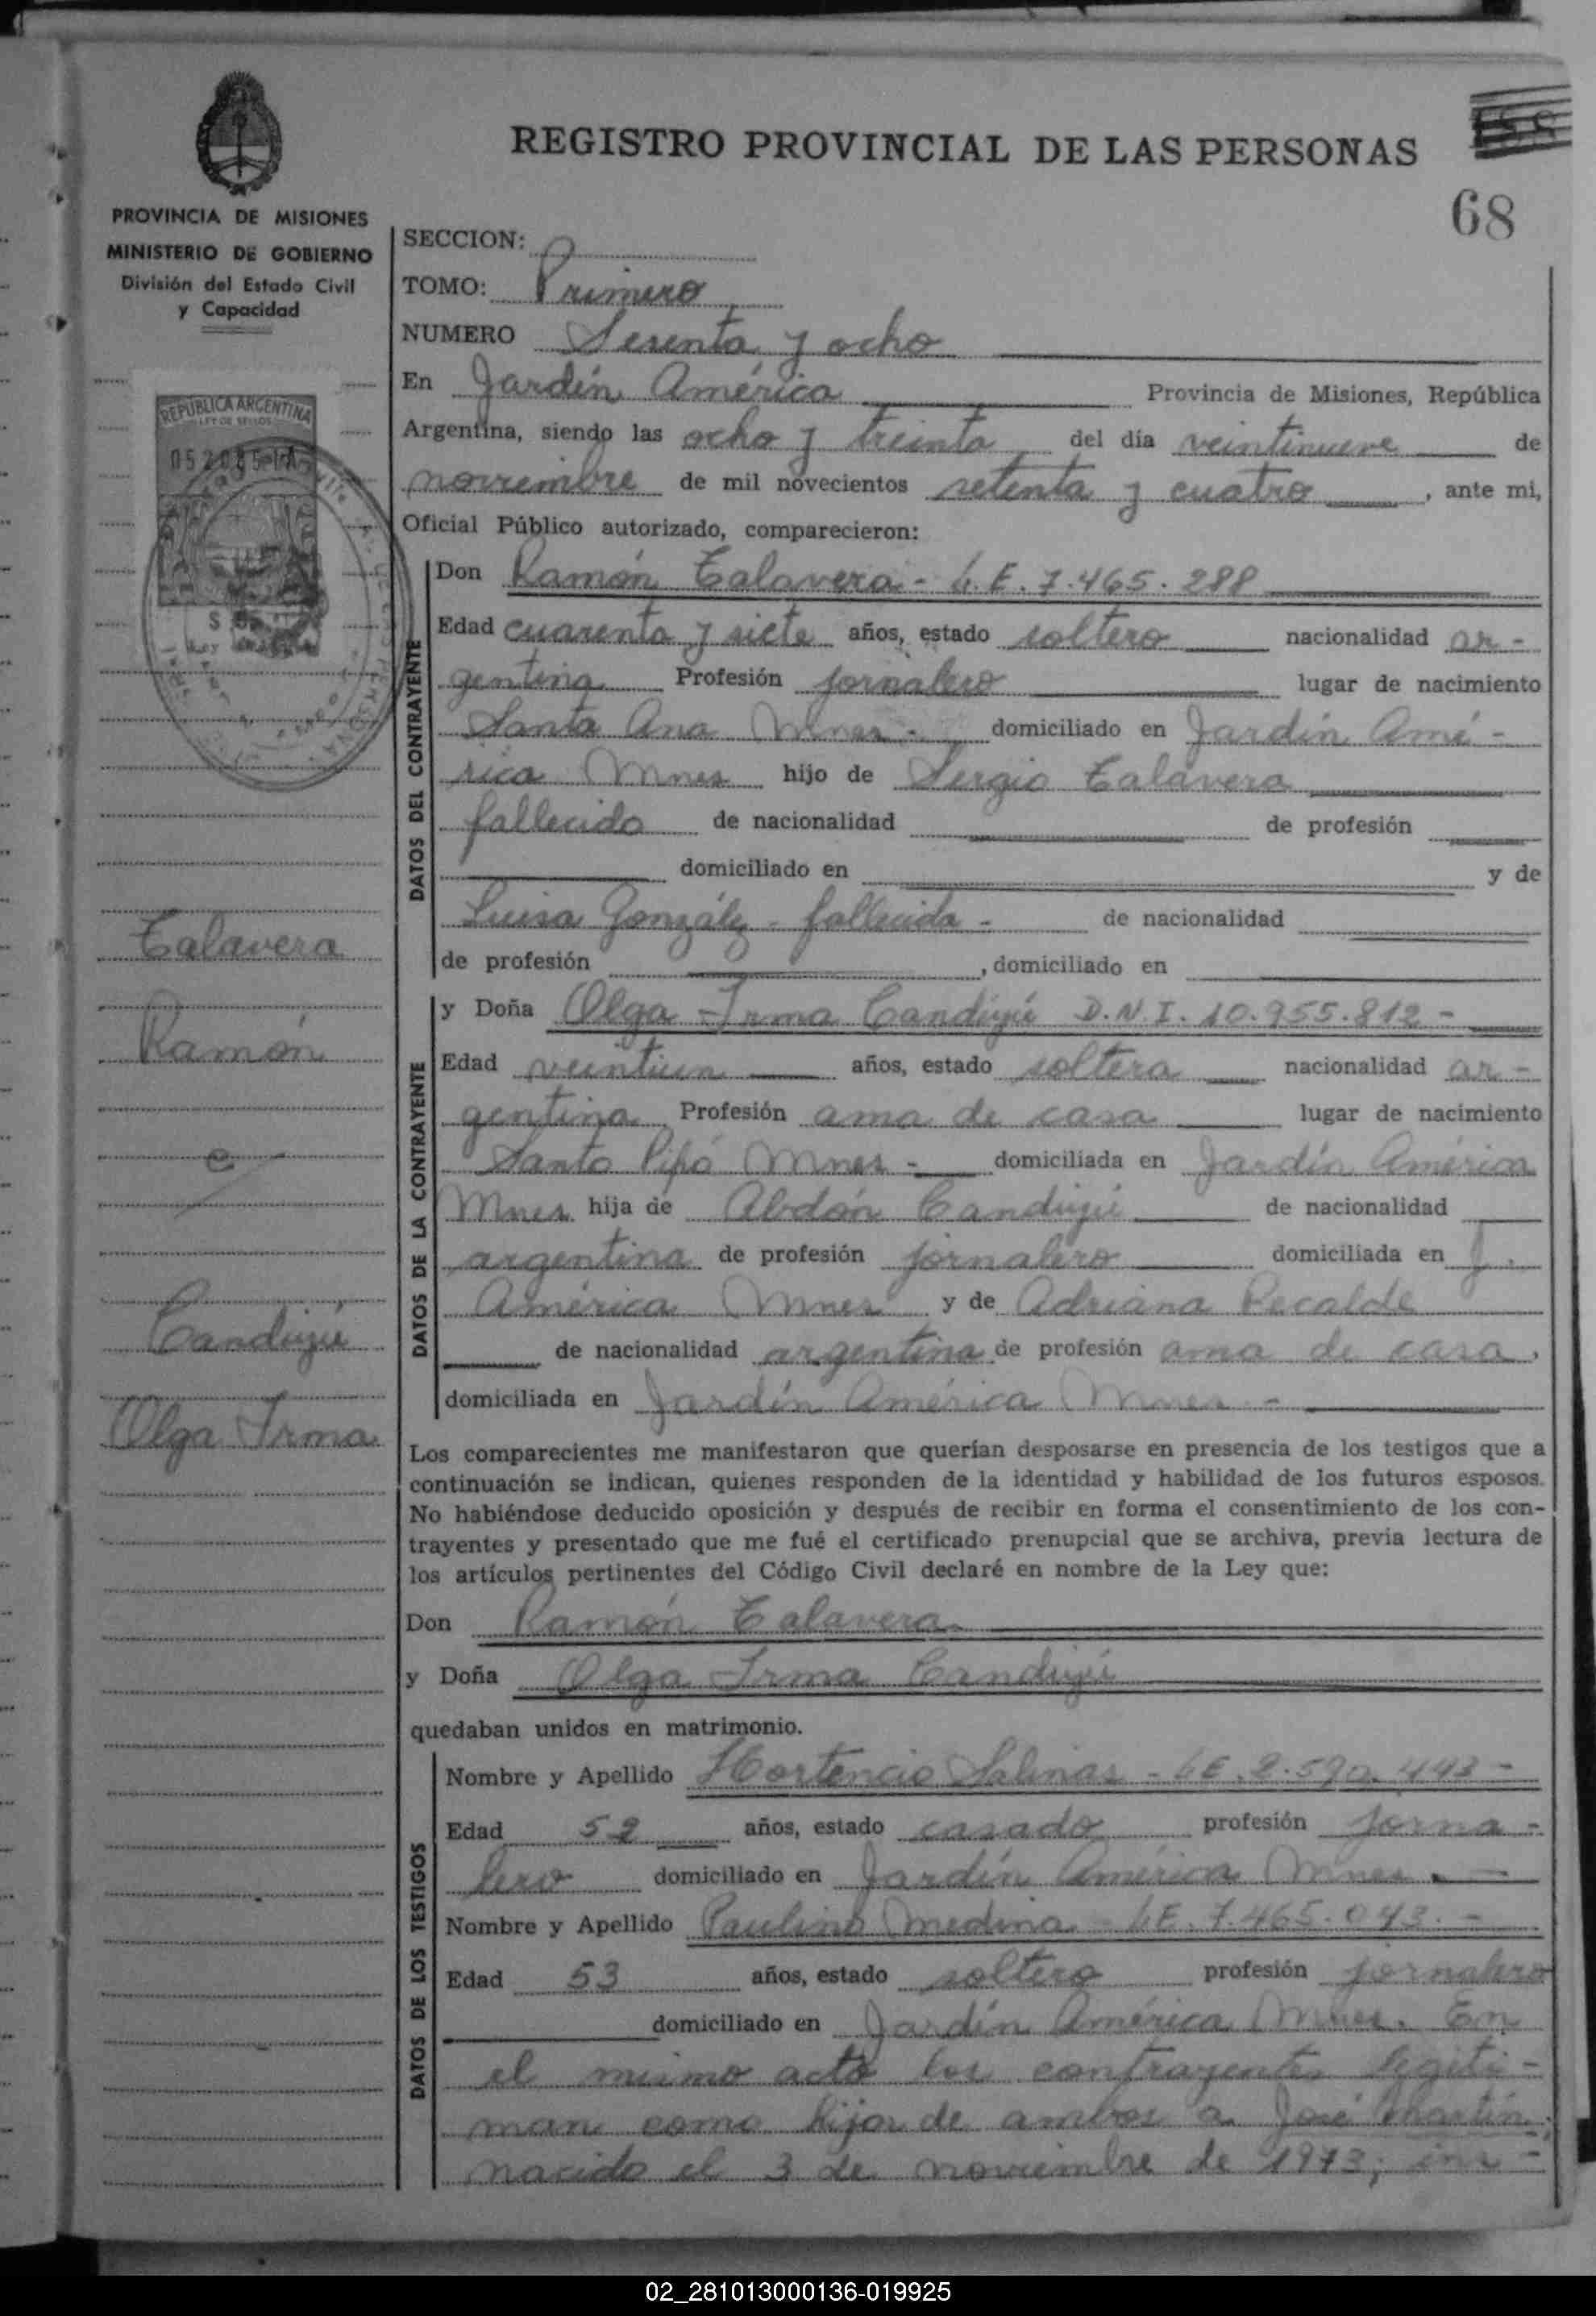 REGISTRO PROVINCIAL DE LAS PERSONAS
68
PROVINCIA DE MISIONES
MINISTERIO DE GOBIERNO
División del Estado Civil
y Capacidad
REPUBLICA ARGENTINA
LEY DE SELLOS
SECCION:
TOMO: Primero
NUMERO Sesenta y ocho
En Jardín América Provincia de Misiones, República
Argentina, siendo las ocho y treinta del día veintinueve de
noviembre de mil novecientos setenta y cuatro, ante mi,
Oficial Público autorizado, comparecieron:
DATOS DEL CONTRAYENTE
Don Ramón Talavera - L.E. 7.465.288
Edad cuarenta y siete años, estado soltero nacionalidad ar-
gentina Profesión jornalero lugar de nacimiento
Santa Ana Mnes - domiciliado en Jardín Amé-
rica Mnes hijo de Sergio Talavera
fallecido de nacionalidad de profesión
domiciliado en y de
Luisa González - fallecida - de nacionalidad
de profesión , domiciliado en
Talavera
Ramón
e
Candujú
Olga Irma
DATOS DE LA CONTRAYENTE
y Doña Olga Irma Candujú D.N.I. 10.955.812 -
Edad veintiun años, estado soltera nacionalidad ar-
gentina Profesión ama de casa lugar de nacimiento
Santo Pipó Mnes - domiciliada en Jardín América
Mnes hija de Abdón Candujú de nacionalidad
argentina de profesión jornalero domiciliada en J.
América Mnes y de Adriana Recalde
de nacionalidad argentina de profesión ama de casa,
domiciliada en Jardín América Mnes -
Los comparecientes me manifestaron que querían desposarse en presencia de los testigos que a
continuación se indican, quienes responden de la identidad y habilidad de los futuros esposos.
No habiéndose deducido oposición y después de recibir en forma el consentimiento de los con-
trayentes y presentado que me fué el certificado prenupcial que se archiva, previa lectura de
los artículos pertinentes del Código Civil declaré en nombre de la Ley que:
Don Ramón Talavera
y Doña Olga Irma Candujú
quedaban unidos en matrimonio.
DATOS DE LOS TESTIGOS
Nombre y Apellido Hortencio Salinas - LE. 2.590.443 -
Edad 52 años, estado casado profesión jorna-
lero domiciliado en Jardín América Mnes. -
Nombre y Apellido Paulino Medina - LE. 7.465.043. -
Edad 53 años, estado soltero profesión jornalero
domiciliado en Jardín América Mnes. En
el mismo acto los contrayentes legiti-
man como hijos de ambos a José Martín,
nacido el 3 de noviembre de 1973; ins-
02_281013000136-019925